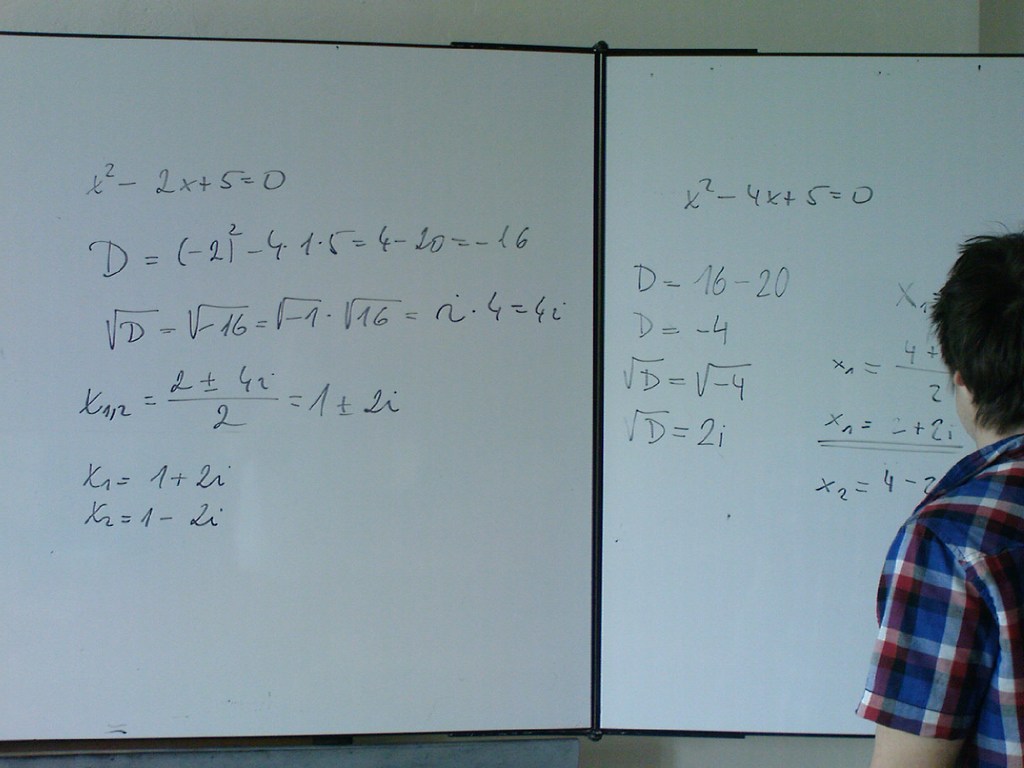 x² - 2x + 5 = 0
D = (-2)² - 4·1·5 = 4 - 20 = -16
√D = √-16 = √-1 · √16 = i · 4 = 4i
x₁,₂ = (2 ± 4i)/2 = 1 ± 2i
x₁ = 1 + 2i
x₂ = 1 - 2i
x² - 4x + 5 = 0
D = 16 - 20
D = -4
√D = √-4
√D = 2i
x₁ = 4 + / 2
x₁ = + 2i
x₂ = 4 - 2